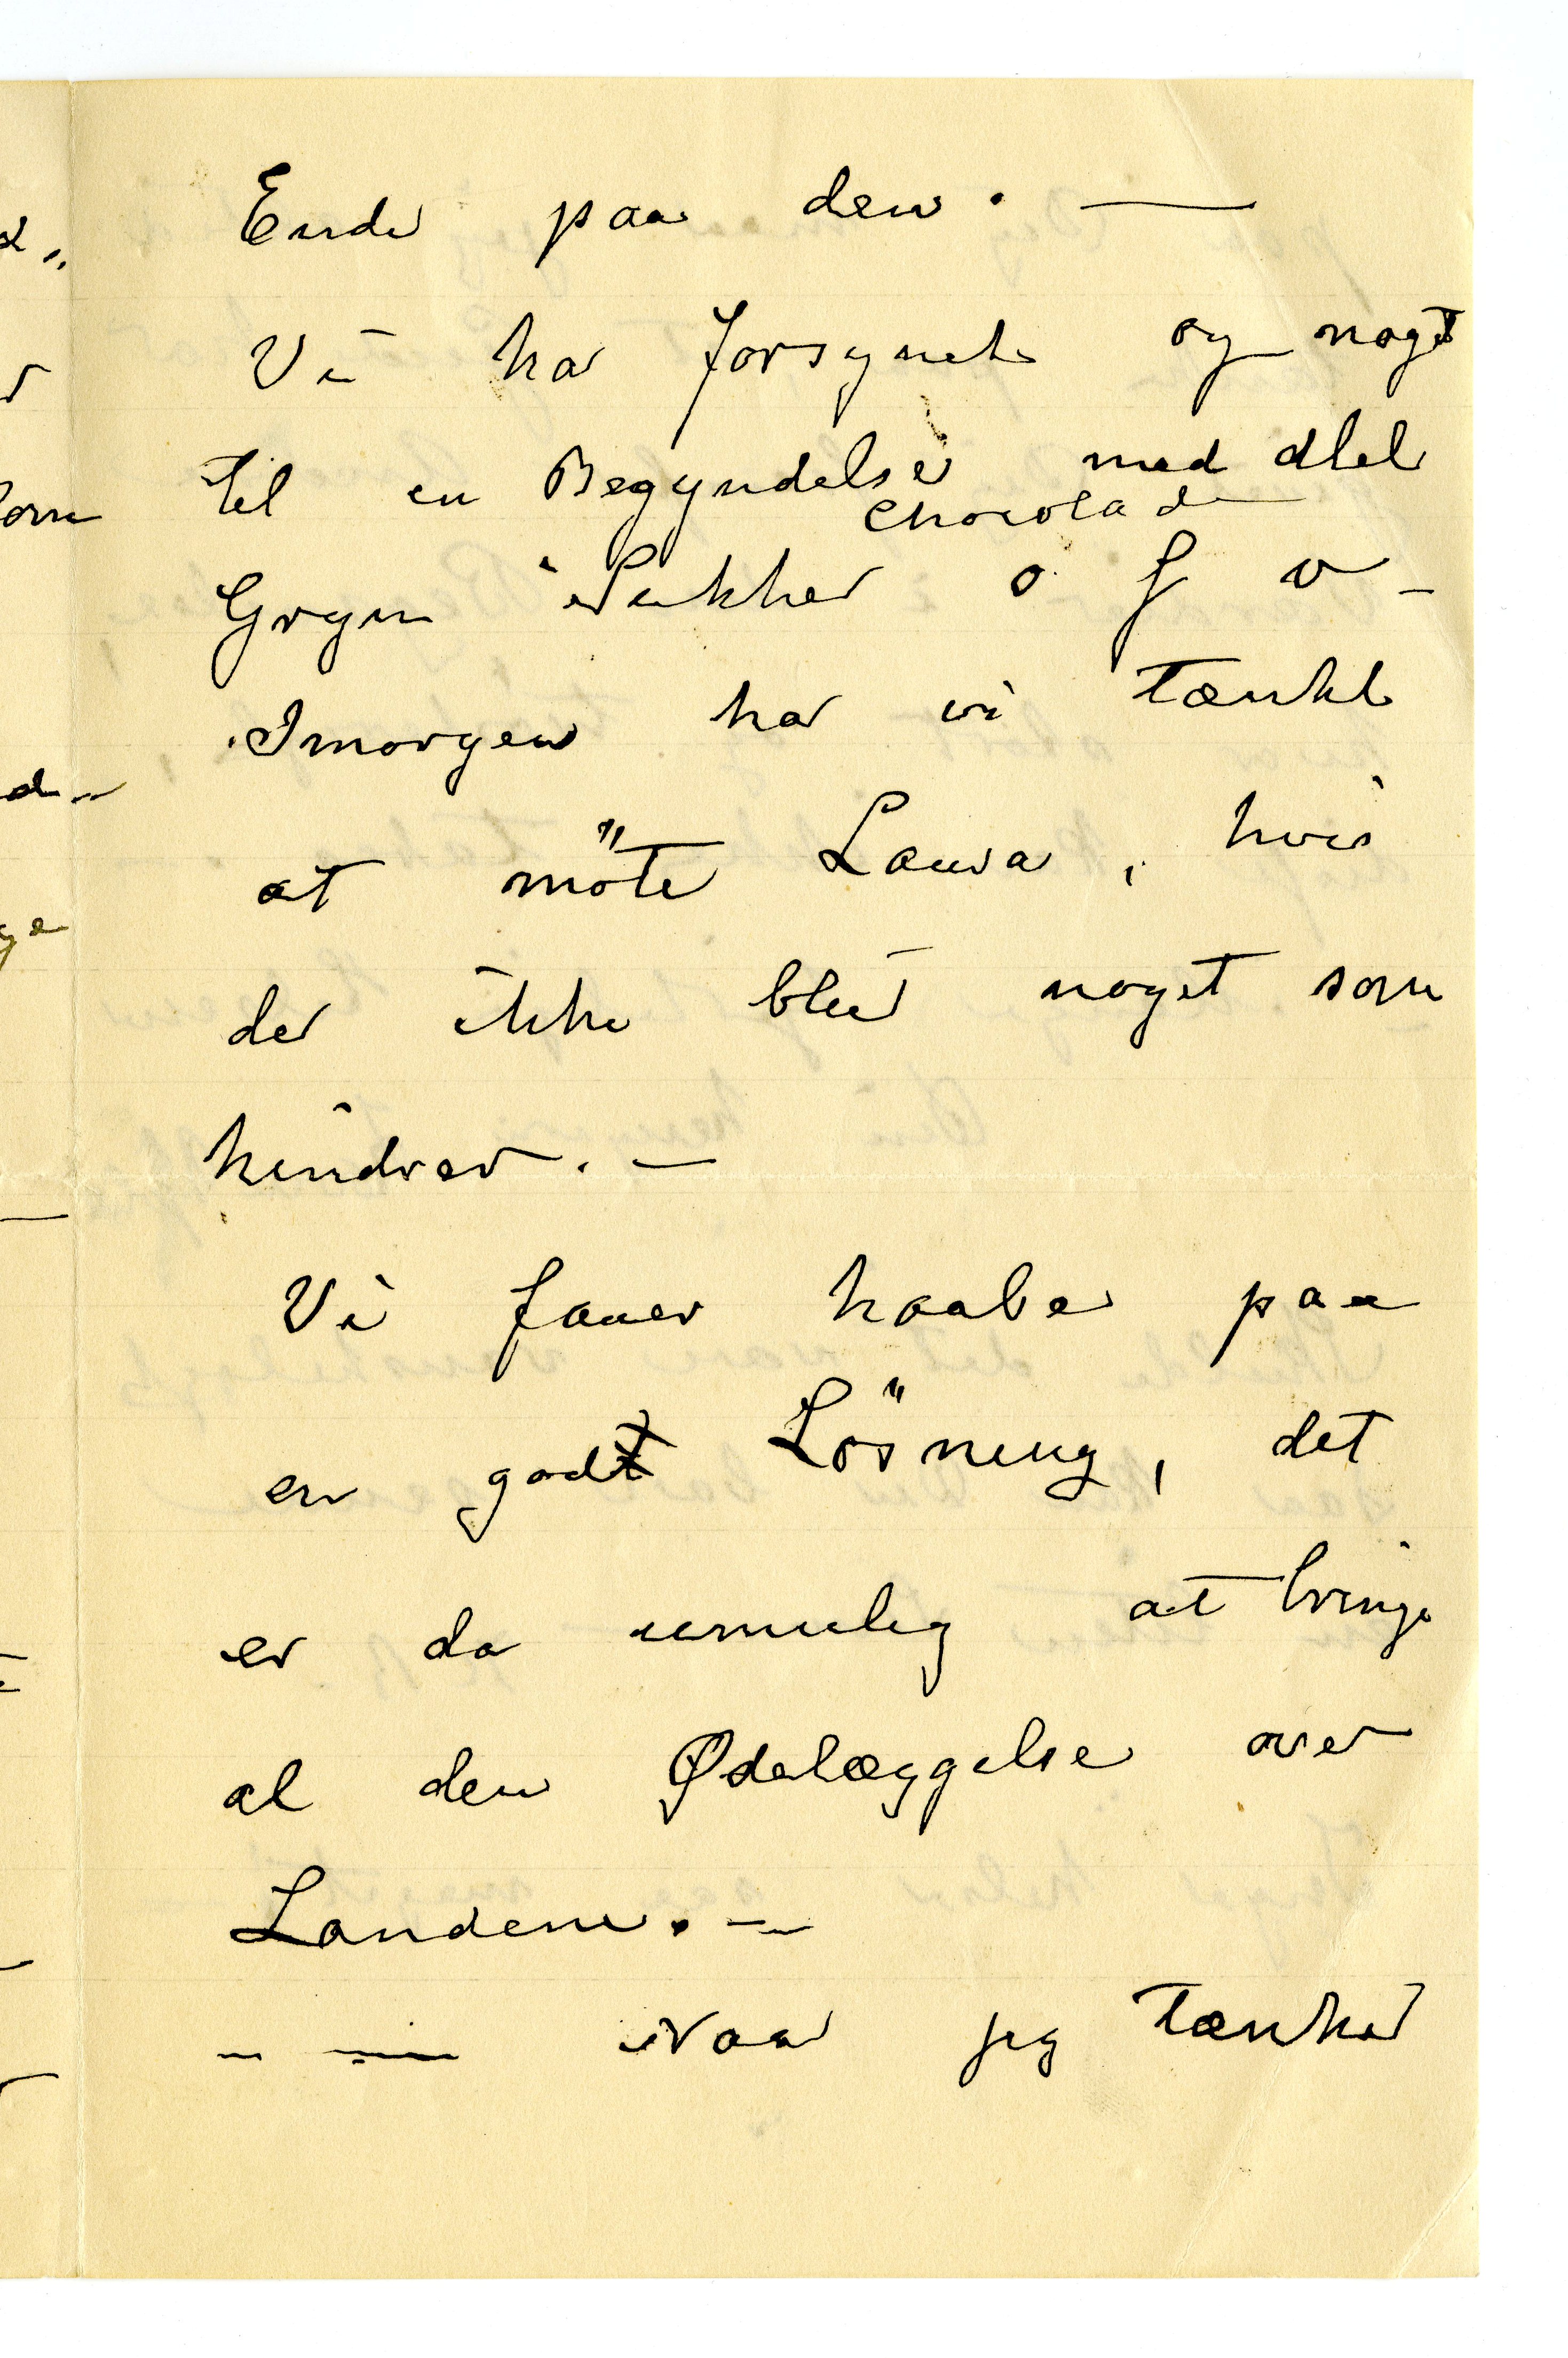 Ende paa den. —
Vi har forsynet os noget
til en Begyndelse med Mel
Chocolade
Gryn Sukker o s v —
Imorgen har vi tænkt
at möte Laura, hvis
der ikke blir noget som
hindrer. —
Vi faaer haabe paa
en god Lösning, det
er da umulig at bringe
al den Ødelæggelse over
Landene. —
— — Naar jeg tænker